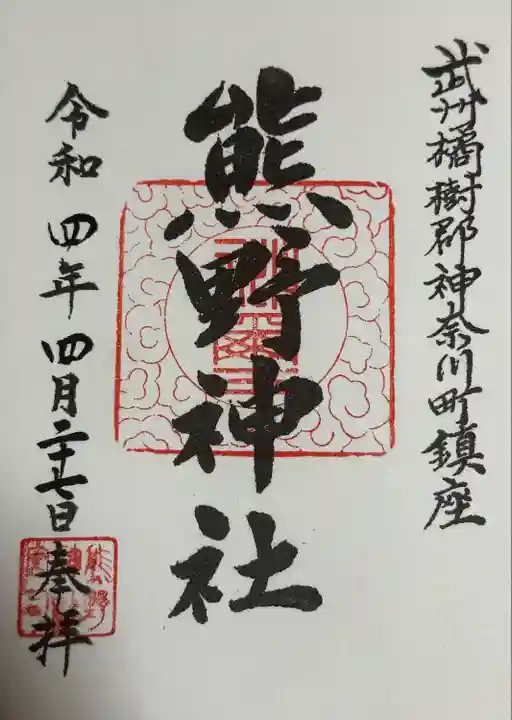 武州橘樹郡神奈川町鎮座
熊野神社
令和四年四月二十七日奉拝